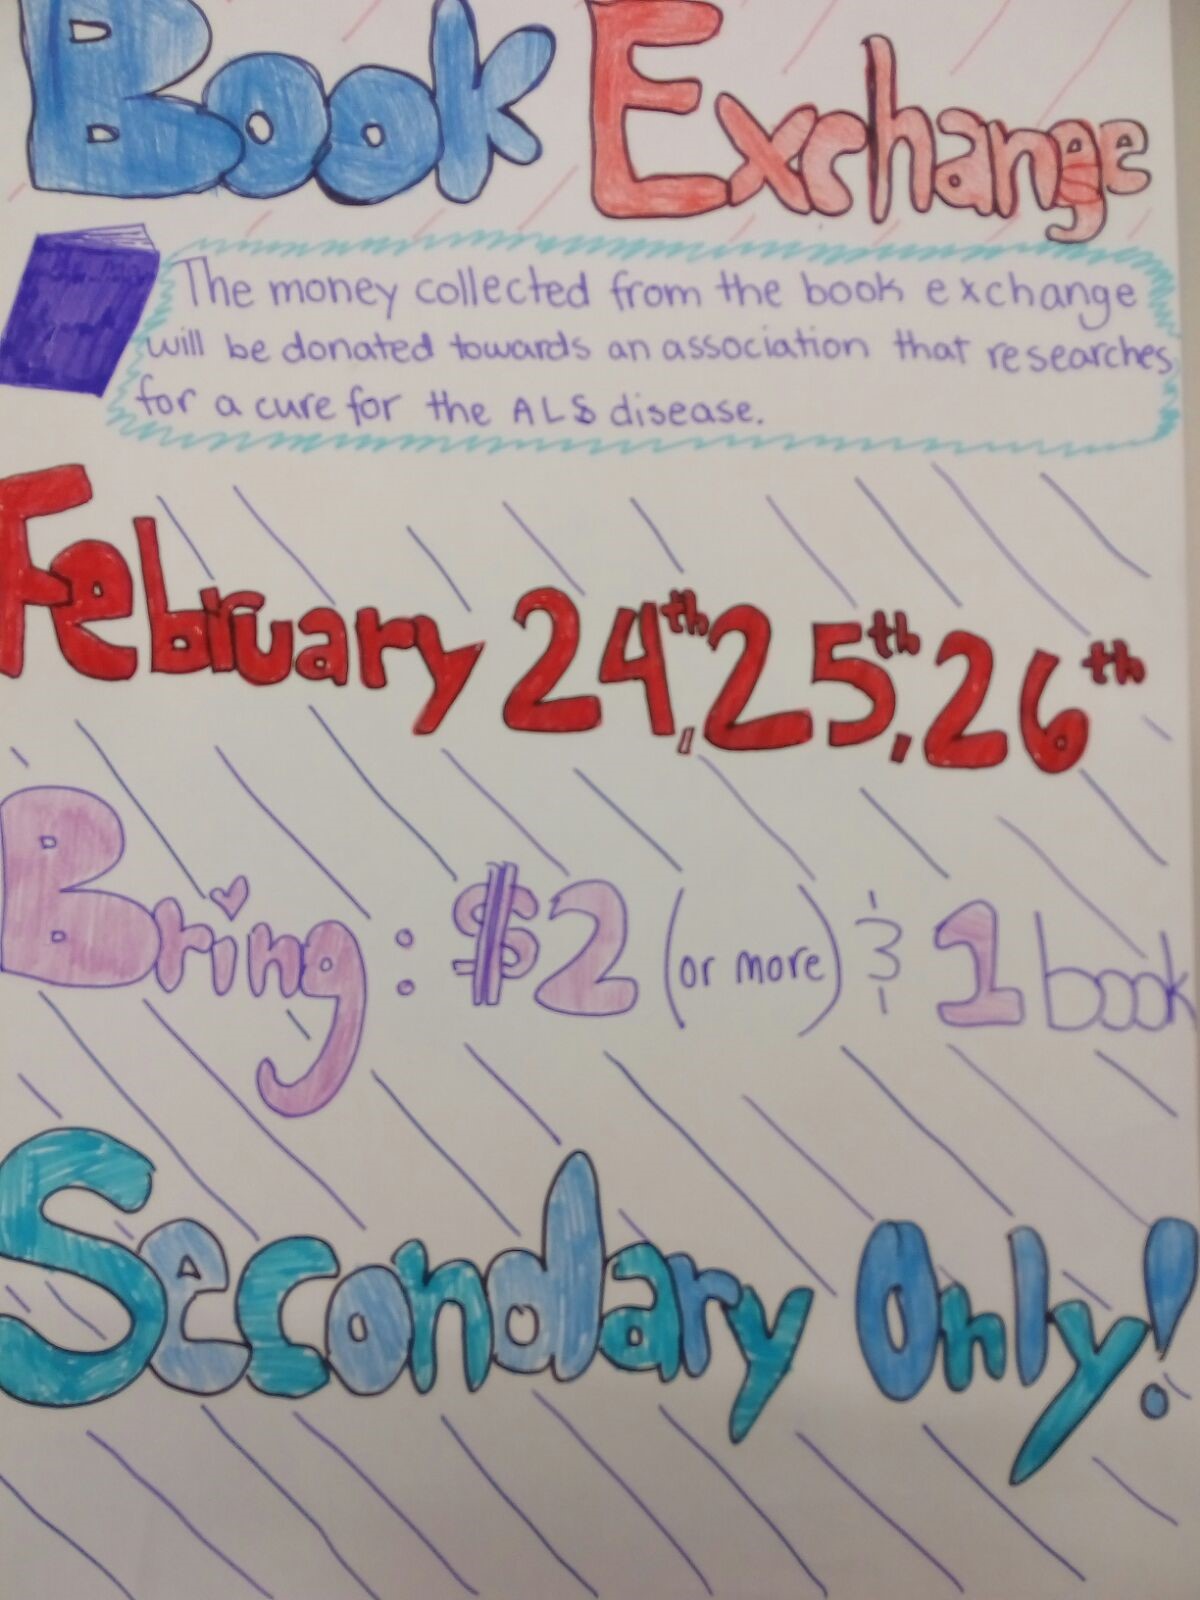 Book Exchange
The money collected from the book exchange
will be donated towards an association that researches
for a cure for the ALS disease.
February 24th, 25th, 26th
Bring: $2 (or more) & 1 book
Secondary Only!